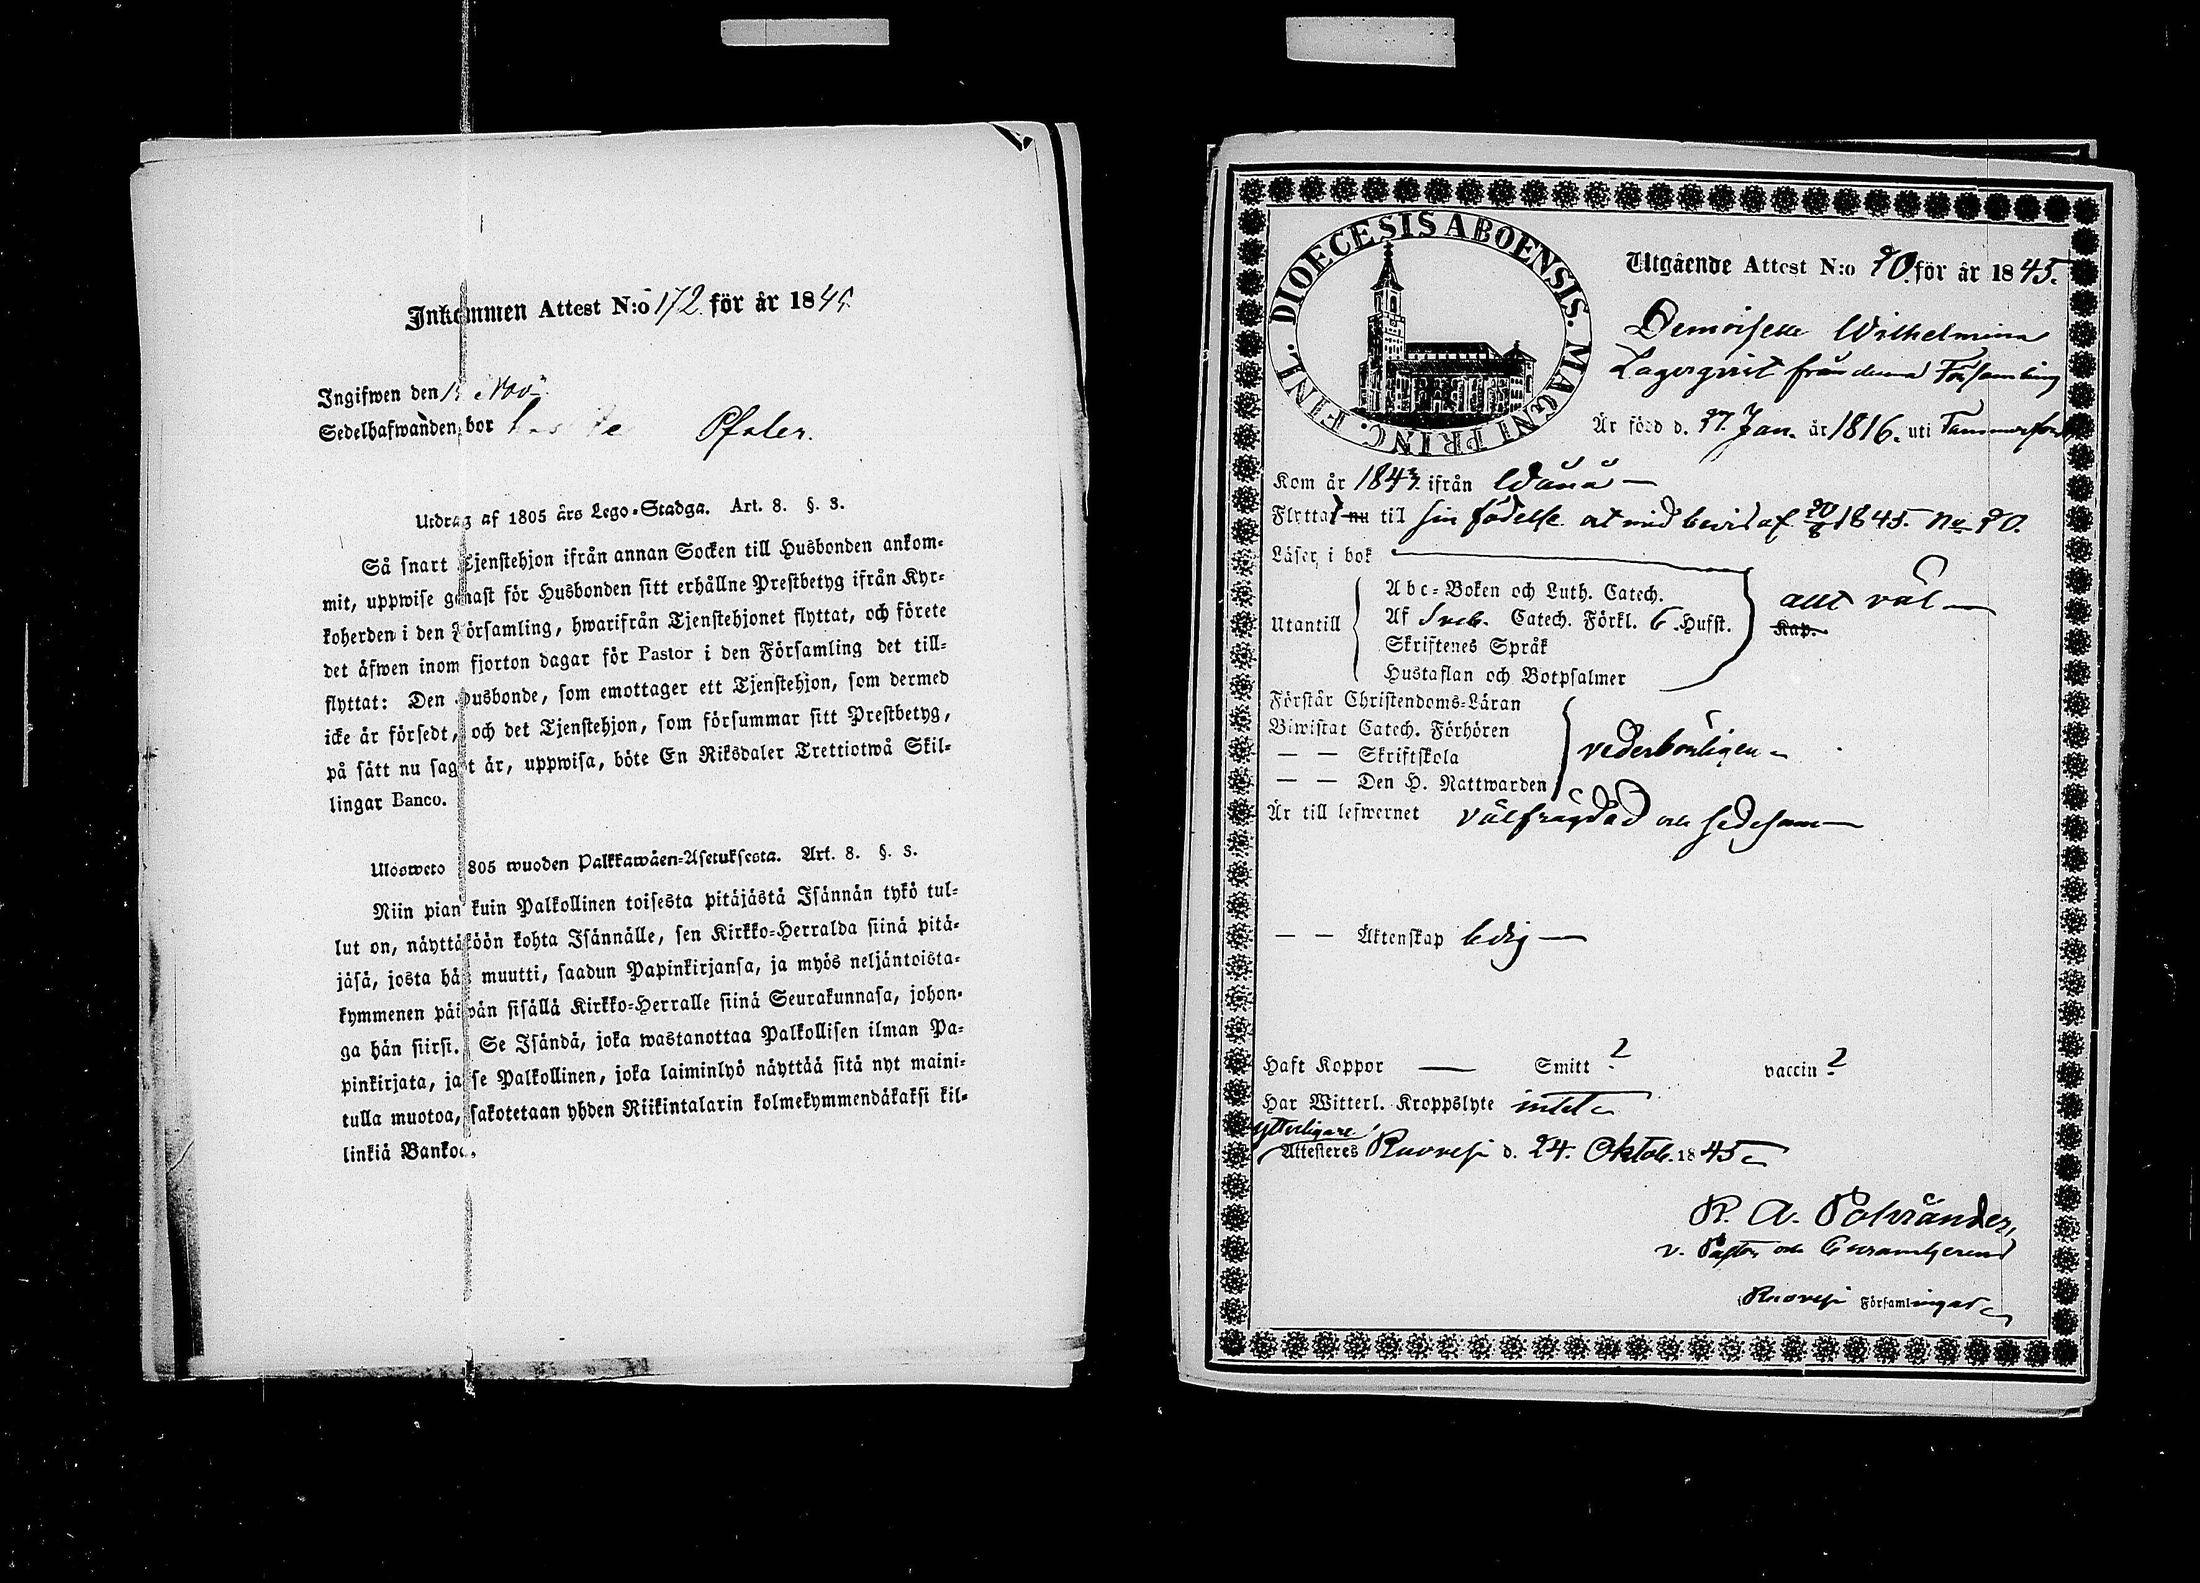 Inkommen Attest N:o 172 för år 1845.
Ingifwen den Nov
Sedelhafwanden bor Pfaler.
Utdrag af 1805 års Lego-Stadga. Art. 8. §. 3.
Så snart Tjenstehjon ifrån annan Socken till Husbonden ankom-
mit, uppwise genast för Husbonden sitt erhållne Prestbetyg ifrån Kyr-
koherden i den Församling, hwarifrån Tjenstehjonet flyttat, och förete
det äfwen inom fjorton dagar för Pastor i den Församling det till-
flyttat: Den Husbonde, som emottager ett Tjenstehjon, som dermed
icke är försedt, och det Tjenstehjon, som försummar sitt Prestbetyg,
på sätt nu sagt är, uppwisa, böte En Riksdaler Trettiotwå Skil-
lingar Banco.
Ulosweto 1805 wuoden Palkkawäen-Asetuksesta. Art. 8. §. 3.
Niin pian kuin Palkollinen toisesta pitäjästä Isännän tykö tul-
lut on, näyttäköön kohta Isännälle, sen Kirkko-Herralda siinä pitä-
jäsä, josta hän muutti, saadun Papinkirjansa, ja myös neljäntoista-
kymmenen päiwän sisällä Kirkko-Herralle siinä Seurakunnasa, johon-
ga hän siirsi. Se Isändä, joka wastanottaa Palkollisen ilman Pa-
pinkirjata, ja se Palkollinen, joka laiminlyö näyttää sitä nyt maini-
tulla muotoa, sakotetaan yhden Riikintalarin kolmekymmendäkaksi kil-
linkiä Bankoa.
DIOECESIS ABOENSIS. MAGNI PRINC. FINL.
Utgående Attest N:o 90. för år 1845.
Demoiselle Wilhelmina
Lagerqvist från denna Församling
Är född d. 27. Jan. år 1816. uti Tammerfors
Kom år 1843. ifrån Wånå
Flyttat nu till sin födelse ort med bevis af 20/8 1845. No 90.
Läser i bok
Utantill
Abc-Boken och Luth. Catech.
Af Sveb. Catech. Förkl. 6 Hufst. Kap.
Skriftenes Språk
Hustaflan och Botpsalmer
allt väl
Förstår Christendoms-Läran
Biwistat Catech. Förhören
— — Skriftskola
— — Den H. Nattwarden
vederbörligen
Är till lefwernet välfrägdad och sedesam
— — Äktenskap ledig
Haft Koppor — Smitt ? vaccin ?
Har Witterl. Kroppslyte intet
ytterligare
Attesteres Ruovesi d. 24. Oktob. 1845
K. A. Polviander,
v. Pastor och
Ruovesi Församlingar